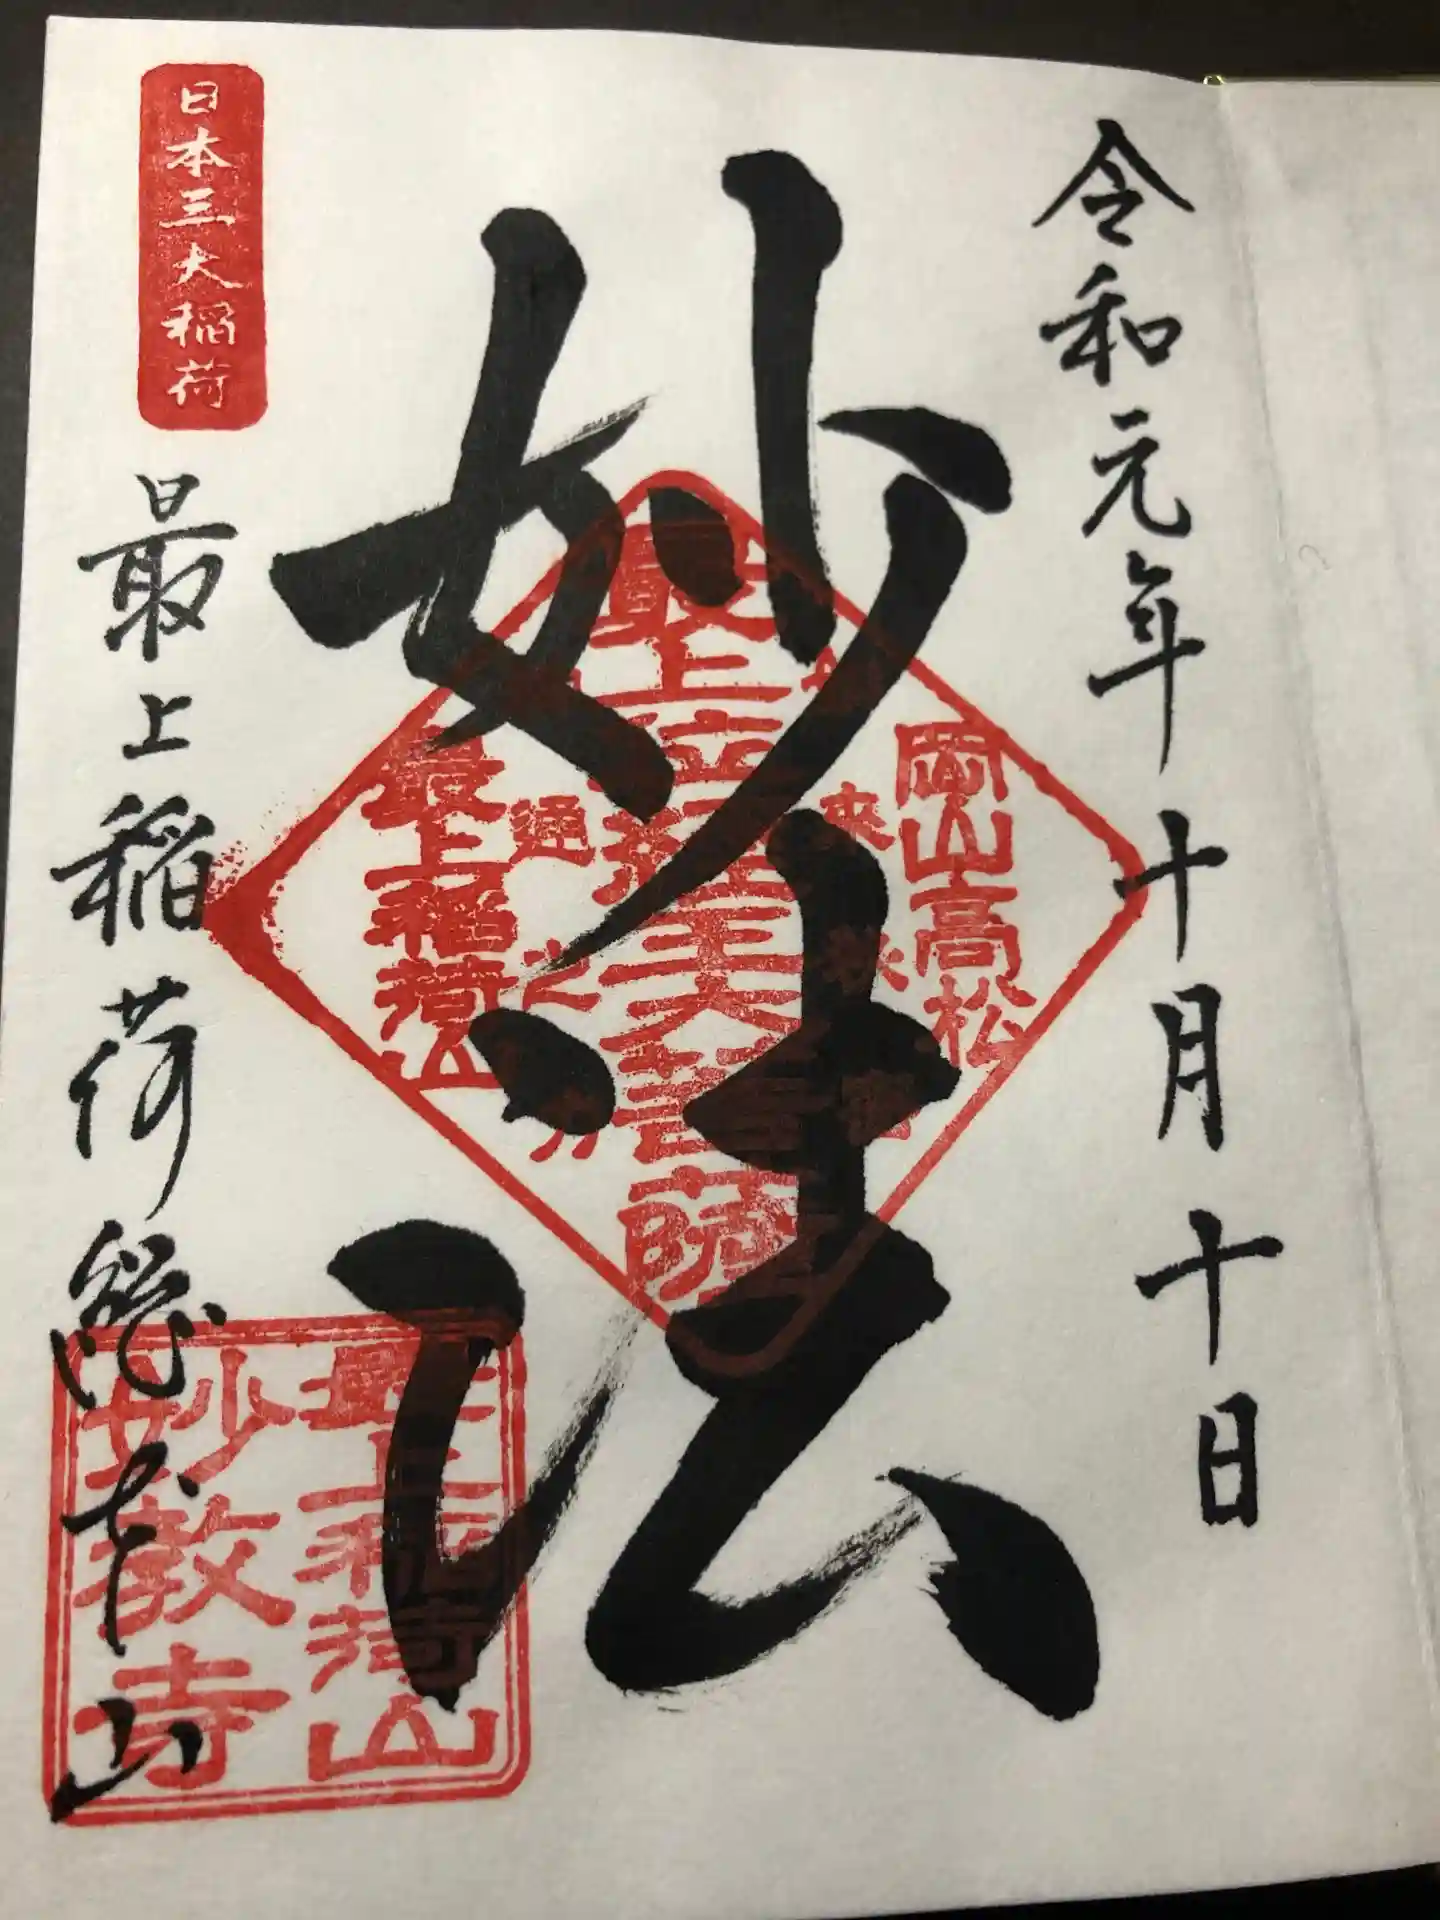 令和元年十月十日
妙法
岡山高松
最上位経王大菩薩
最上稲荷山
日本三大稲荷
最上稲荷総本山
最上稲荷山
妙教寺